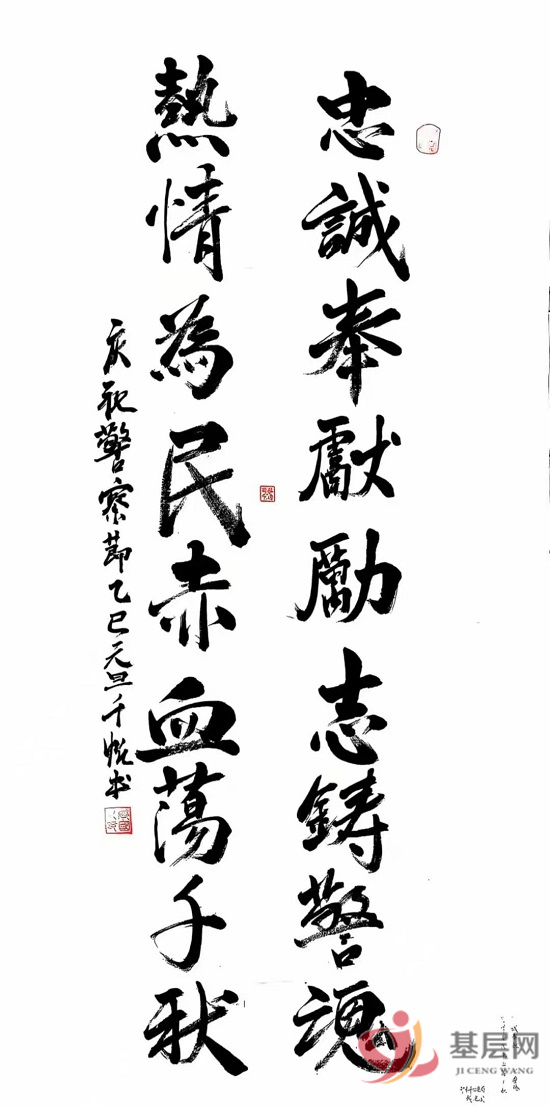 忠誠奉獻勵志鑄警魂
熱情為民赤血蕩千秋
庆祝警察節乙巳元旦千悦书
基层网
JI CENG WANG